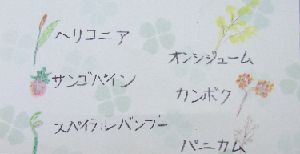 ヘリコニア
サンゴパイン
スパイラルバンブー
オンシジューム
カンボク
パニカム